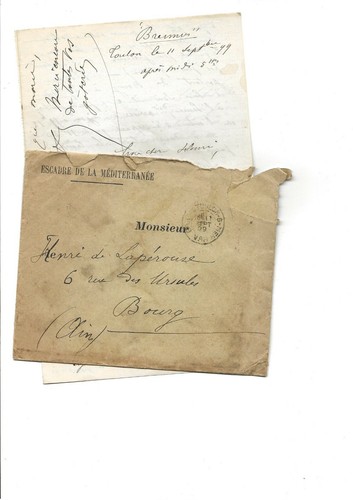 "Brennus"
Toulon le 11 Septbre 99
après midi 5 hres
Mon cher Henri,
de toutes vos
ESCADRE DE LA MÉDITERRANÉE
Monsieur
Henri de Lapérouse
6 rue des Ursules
Bourg
(Ain)